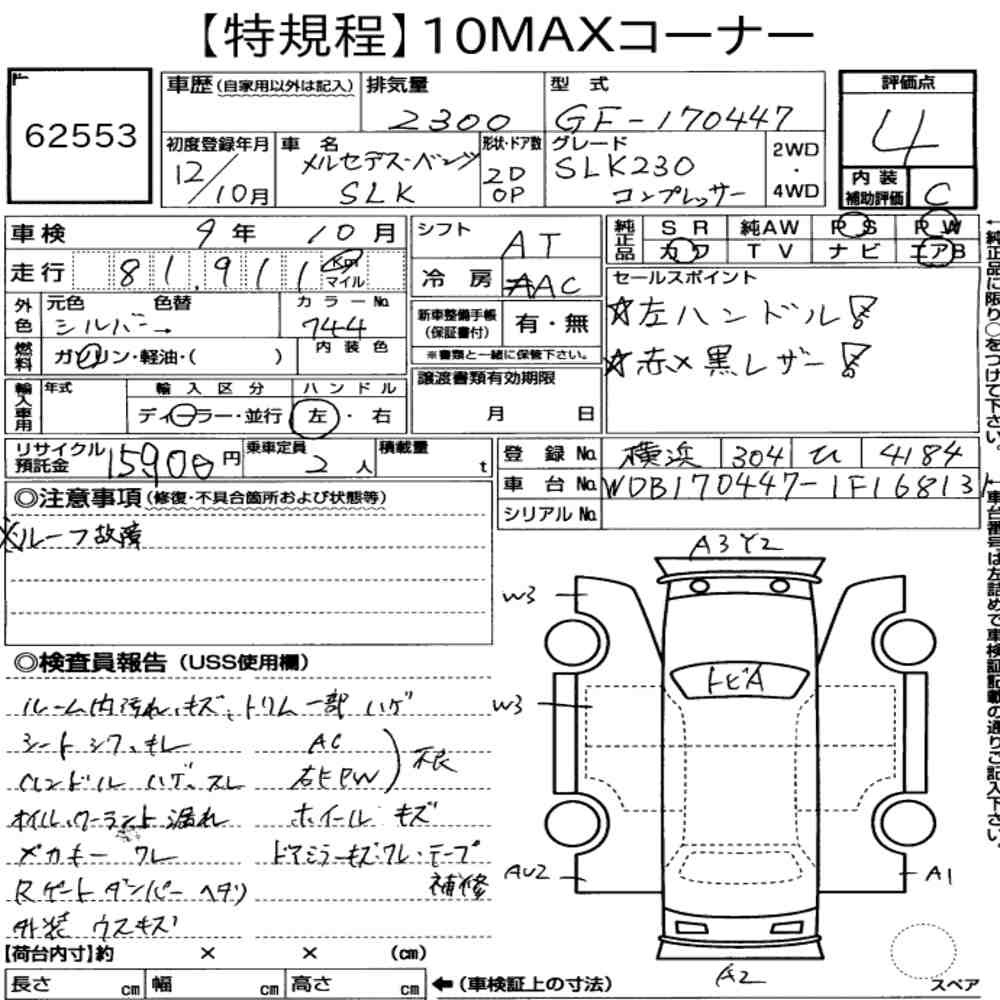 【特規程】10MAXコーナー
62553
車歴(自家用以外は記入)
排気量
2300
型式
GF-170447
評価点
4
内装補助評価
C
初度登録年月
12/10月
車名
メルセデス-ベンツ
SLK
形状・ドア数
2D
OP
グレード
SLK230
コンプレッサー
2WD
・
4WD
車検 9年 10月
走行 81,911 Km マイル
外色
元色 色替 カラーNo.
シルバー→ 744
燃料
ガソリン・軽油・( )
内装色
輸入車用
年式
輸入区分 ハンドル
ディーラー・並行 左・右
シフト AT
冷房 AAC
新車整備手帳(保証書付) 有・無
※書類と一緒に保管下さい。
譲渡書類有効期限
月 日
純正品
SR 純AW PS PW
カワ TV ナビ エアB
セールスポイント
☆左ハンドル!
☆赤×黒レザー!
←純正品に限り○をつけて下さい。
リサイクル預託金 15900円
乗車定員 2人
積載量 t
登録No. 横浜 304 ひ 4184
車台No. WDB170447-1F16813
シリアルNo.
←車台番号は左詰めで車検証記載の通りご記入下さい。
◎注意事項(修復・不具合箇所および状態等)
ルーフ故障
◎検査員報告(USS使用欄)
ルーム内汚れ、キズ、トリム一部ハゲ
シートシワ、モレ
AC
ハンドル ハゲ、スレ
右ヒPW
不良
オイル、クーラント漏れ
ホイール キズ
メカキー ワレ
ドアミラーキズ・ワレ・テープ
補修
Rゲートダンパー ヘタリ
外装 ウスキズ
A3 Y2
W3
トビA
W3
AU2
A1
A2
スペア
【荷台内寸】約 × × (cm)
長さ cm 幅 cm 高さ cm ←(車検証上の寸法)